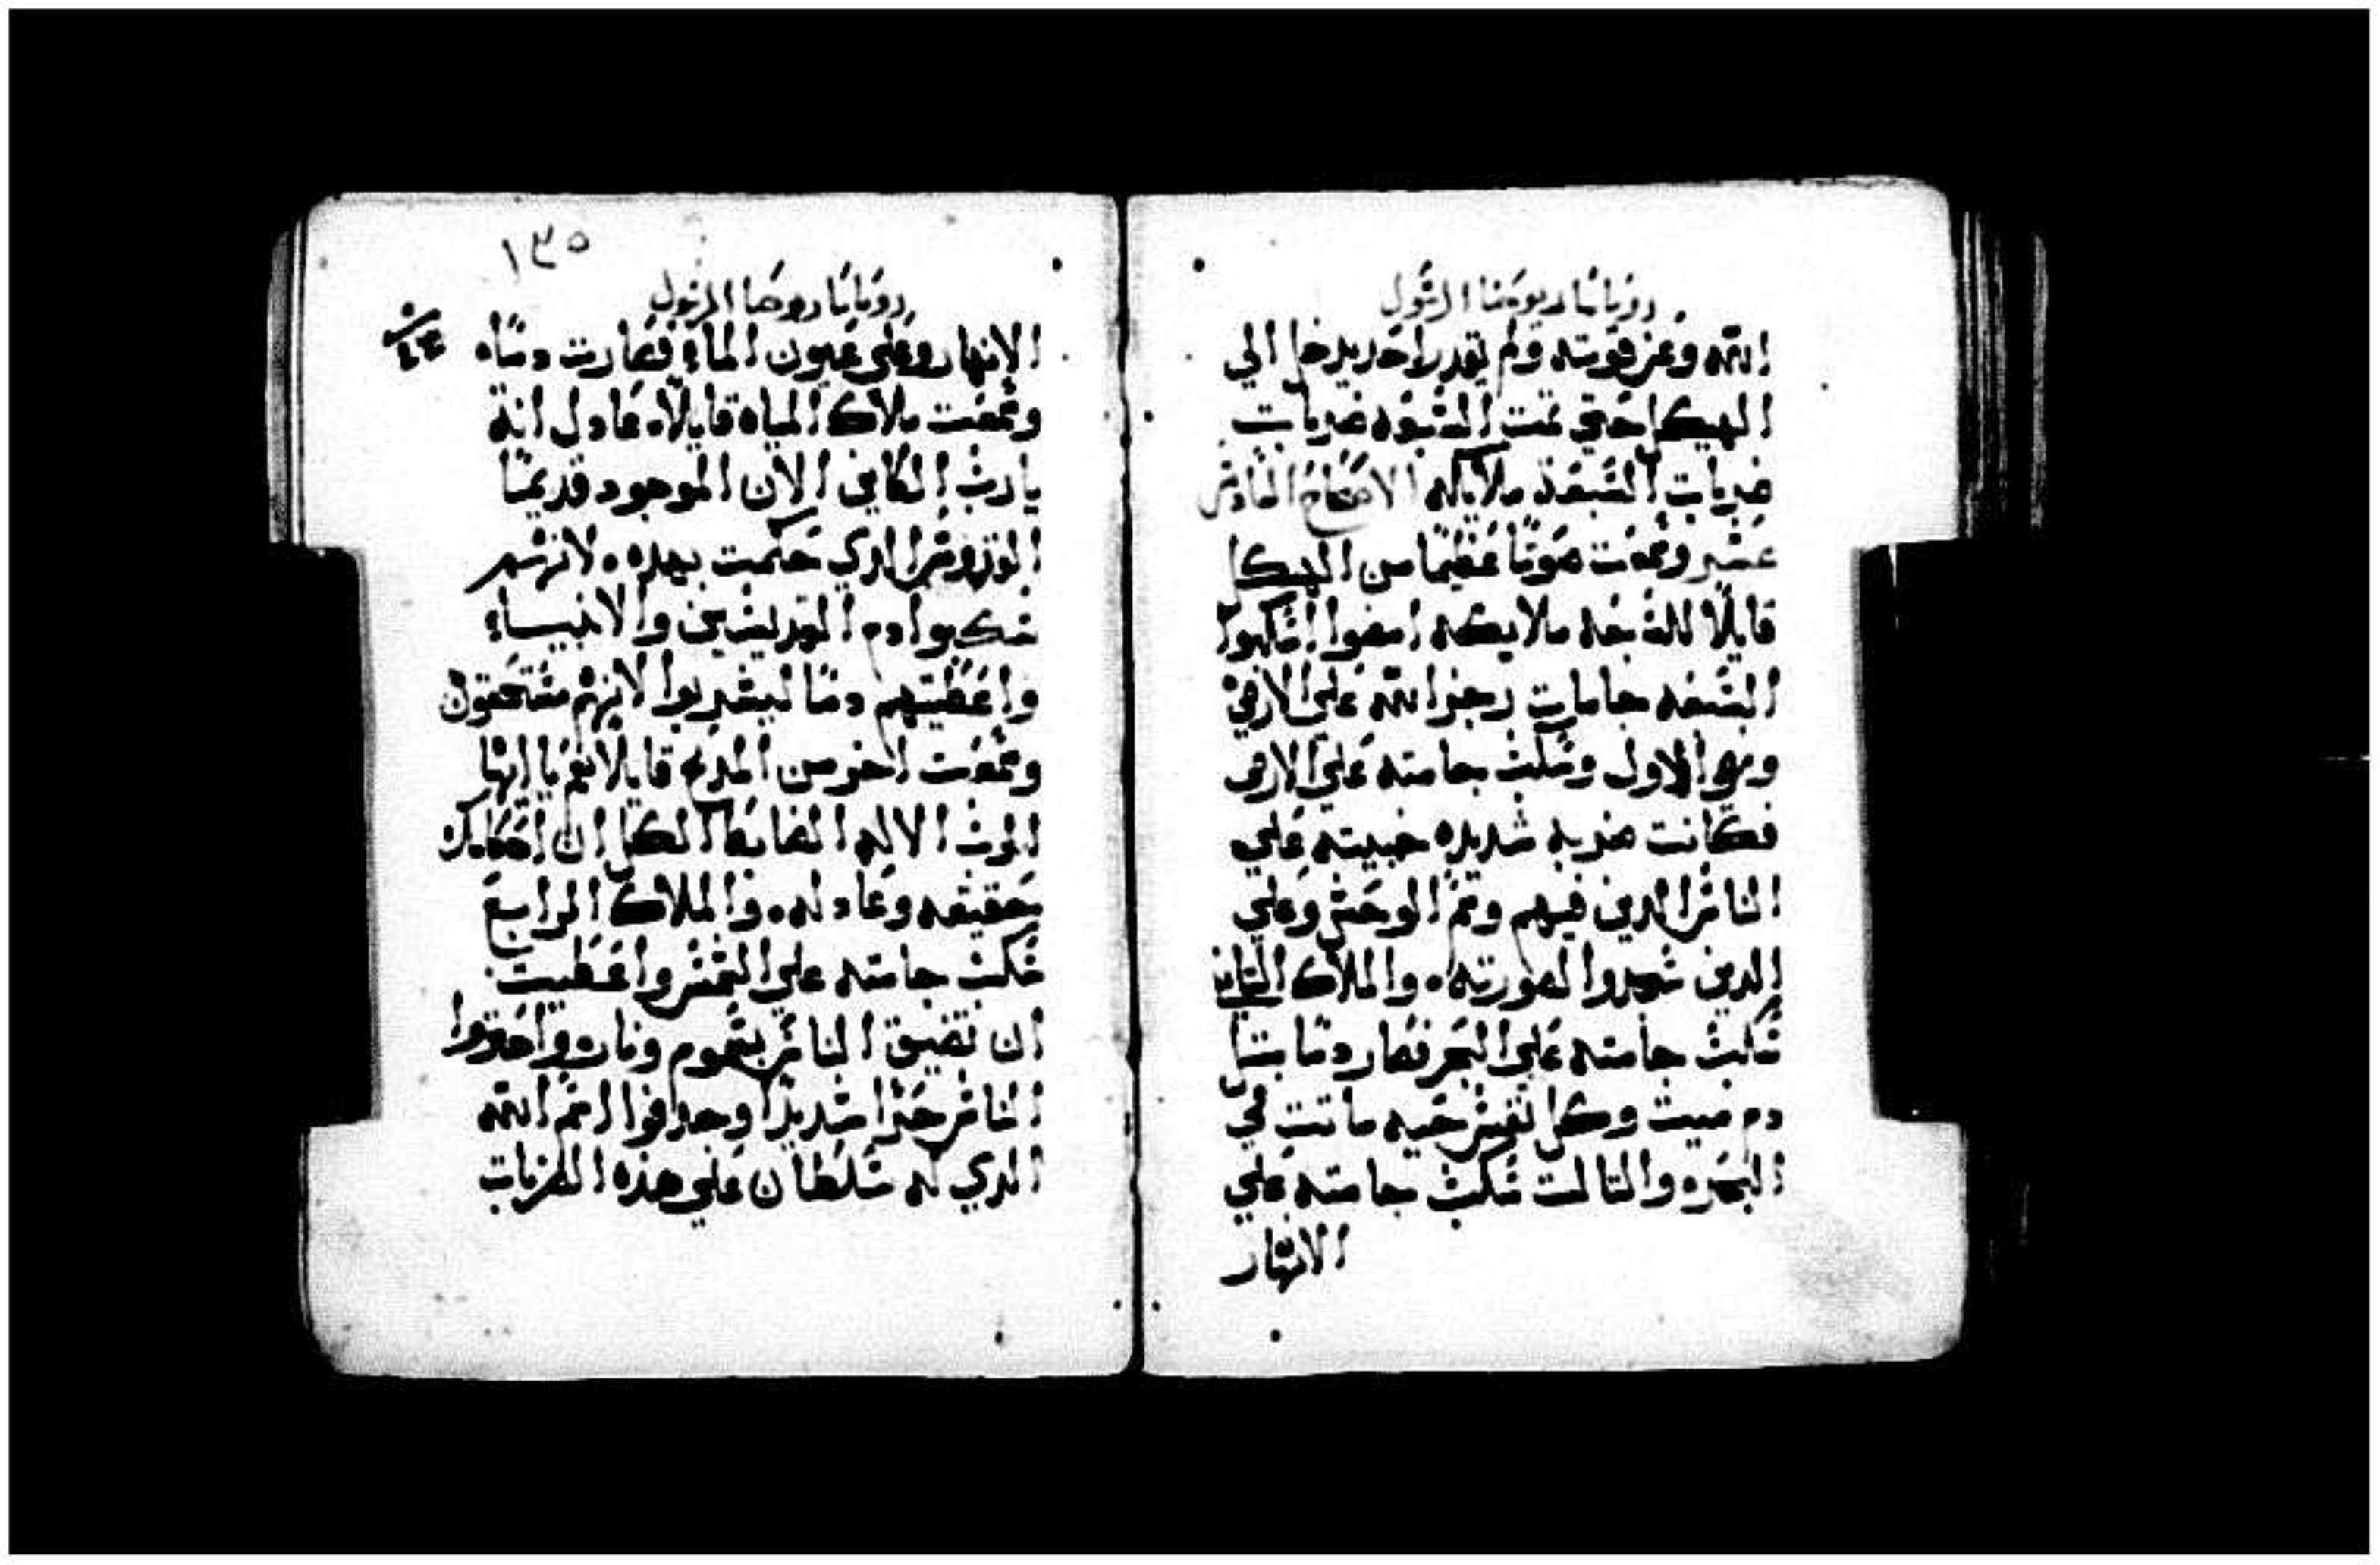 رويا مار يوحنا الرسول
الله وعز قوته ولم يقدر احد يدخل الي
الهيكل حتي تمت السبعه ضربات
ضربات السبعة ملايكه الاصحاح السادس
عشر وسمعت صوتا عظيما من الهيكل
قايلا للسبعه ملايكه امضوا اسكبوا
السبعه جامات رجز الله علي الارض
ومضي الاول وسكب جامته علي الارض
فكانت ضربه شديده خبيته علي
الناس الدين فيهم وسم الوحش وعلي
الدين سجدوا لصورته. والملاك التاني
سكب جامته علي البحر فصار دما متل
دم ميت وكل نفس حيه ماتت في
البحر. والتالت سكب جامته علي
الانهار
١٣٥
رويا مار يوحنا الرسول
الانهار وعلي عيون الماء فصارت دما.
وسمعت ملاك المياه قايلا. عادل انت
يارب الكاين الان الموجود قديما
القدوس الدي حكمت بهده. لانهم
سكبوا دم القديسين والانبياء
واعطيتهم دما ليشربوا لانهم مستحقون
وسمعت اخر من المدبح قايلا نعم يا ايها
الرب الاله الضابط الكل ان احكامك
حقيقه وعادله. والملاك الرابع
سكب جامته علي الشمس واعطيت
ان تضيق الناس بسموم ونار. واحترقوا
الناس حرا شديدا وجدفوا اسم الله
الدي له سلطان علي هذه الضربات